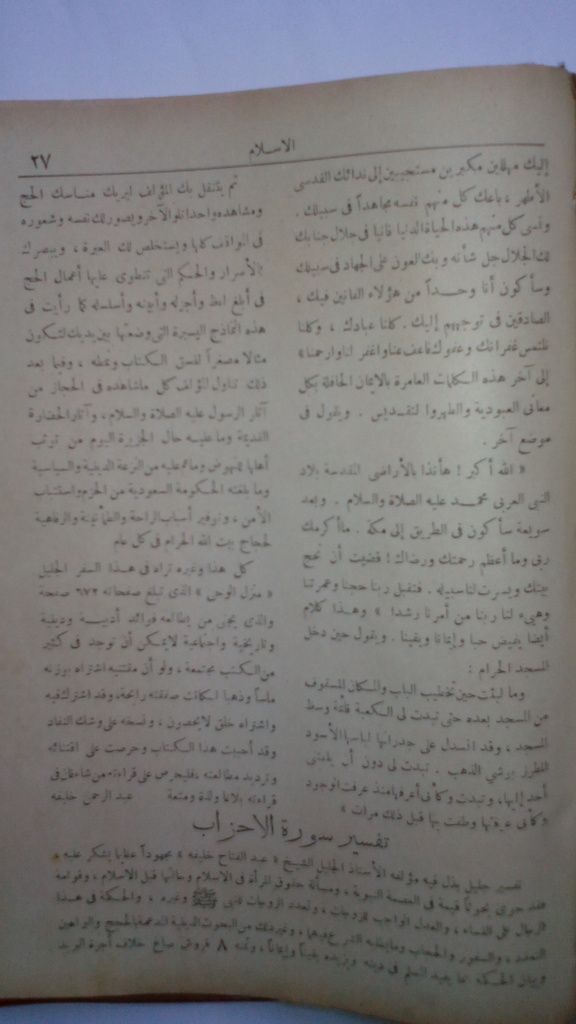 الاسلام
٢٧
إليك مهللين مكبرين مستجيبين إلى ندائك القدسى
الأطهر، باعك كل منهم نفسه مجاهداً فى سبيلك.
ونسى كل منهم هذه الحياة الدنيا فانيا فى جلال جنابك
لك الجلال جل شأنه وبك العون على الجهاد فى سبيلك
وسأكون أنا وحداً من هؤلاء الفانين فيك،
الصادقين فى توجههم إليك. كلنا عبادك، وكلنا
نلتمس غفرانك وعفوك فاعف عنا واغفر لنا وارحمنا»
إلى آخر هذه الكلمات العامرة بالايمان الحافلة بكل
معانى العبودية والطهر والتقديس. ويقول فى
موضع آخر.
« الله أكبر! هأنذا بالأراضى المقدسة بلاد
النبى العربى محمد عليه الصلاة والسلام. وبعد
سويعة سأكون فى الطريق إلى مكة. ما أكرمك
ربى وما أعظم رحمتك ورضاك! قضيت أن نحج
بيتك ويسرت لنا سبيله. فتقبل ربنا حجنا وعمرتنا
وهيىء لنا ربنا من أمرنا رشدا! » وهذا كلام
أيضا يفيض حبا وإيمانا ويقينا. ويقول حين دخل
المسجد الحرام:
وما لبثت حين تخطيت الباب والمكان المسقوف
من المسجد بعده حتى تبدت لى الكعبة قائمة وسط
المسجد، وقد انسدل على جدرانها لباسها الأسود
المطرز بوشى الذهب. تبدت لى دون أن يلفتنى
أحد إليها، وتبدت وكأنى أعرفها منذ عرفت الوجود
وكأنى عرفتها وطفت بها قبل ذلك مرات »
ثم يتنقل بك المؤلف ليريك مناسك الحج
ومشاهده واحدا تلو الآخر ويصور لك نفسه وشعوره
فى المواقف كلها ويستخلص لك العبرة، ويبصرك
بالأسرار والحكم التى تنطوى عليها أعمال الحج
فى أبلغ لفظ وأجزله وأبينه وأسلسله كما رأيت فى
هذه النماذج اليسيرة التى وضعتها بين يديك لتكون
مثالا مصغراً لنسق الكتاب ونمطه، وفيما بعد
ذلك تناول المؤلف كل ما شاهده فى الحجاز من
آثار الرسول عليه الصلاة والسلام، وآثار الحضارة
القديمة وما عليه حال الجزيرة اليوم من توثب
أهلها للنهوض وما هم عليه من النزعة الدينية والسياسية
وما بلغته الحكومة السعودية من الحزم واستتباب
الأمن، وتوفير أسباب الراحة والطمأنينة والرفاهية
لحجاج بيت الله الحرام فى كل عام
كل هذا وغيره تراه فى هذا السفر الجليل
« منزل الوحى » الذى تبلغ صفحاته ٦٧٢ صفحة
والذى يجنى من يطالعه فوائد أدبية ودينية
وتاريخية واجتماعية لا يمكن أن توجد فى كثير
من الكتب مجتمعة، ولو أن مقتنيه اشتراه بوزنه
ماساً وذهبا لكانت صفقته رابحة، وقد اشترك فيه
واشتراه خلق لا يحصون، ونسخه على وشك النفاد
وقد أحببت هذا الكتاب وحرصت على اقتنائه
وترديد مطالعته، فليحرص على قراءته من شاء فان فى
قراءته بلاغا ولذة ومتعة عبد الرحمن خليفه
تفسير سورة الاحزاب
تفسير جليل بذل فيه مؤلفه الأستاذ الجليل الشيخ « عبد الفتاح خليفه » مجهوداً عظيما يشكر عليه،
فقد حوى بحوثاً قيمة فى العصمة النبوية، ومسألة حقوق المرأة فى الاسلام وحالتها قبل الاسلام، وقوامة
الرجال على النساء، والعدل الواجب للزوجات، وتعدد الزوجات للنبى ﷺ وغيره، والحكمة فى هذا
التعدد، والسفور والحجاب وما يطلبه الشرع فيهما، وغير ذلك من البحوث الدينية المدعمة بالحجج والبراهين
وبيان الحكمة مما يفيد المسلم فى دينه ويزيده يقيناً وإيماناً، وثمنه ٨ قروش صاغ خلاف أجرة البريد